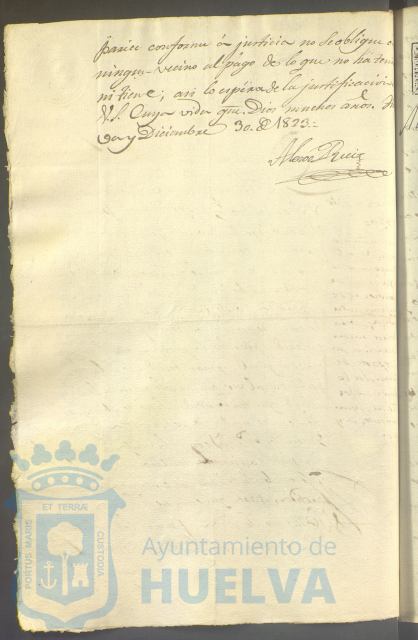 parece conforme á justicia no se obligue a
ningun vecino al pago de lo que no ha ten
ni tiene; asi lo espera de la justificacion
V.S. Cuya vida gue. Dios muchos años.
va y Diciembre 30 de 1823.=
Ruiz
ET TERRÆ
PORTUS MARIS
CUSTODIA
Ayuntamiento de
HUELVA